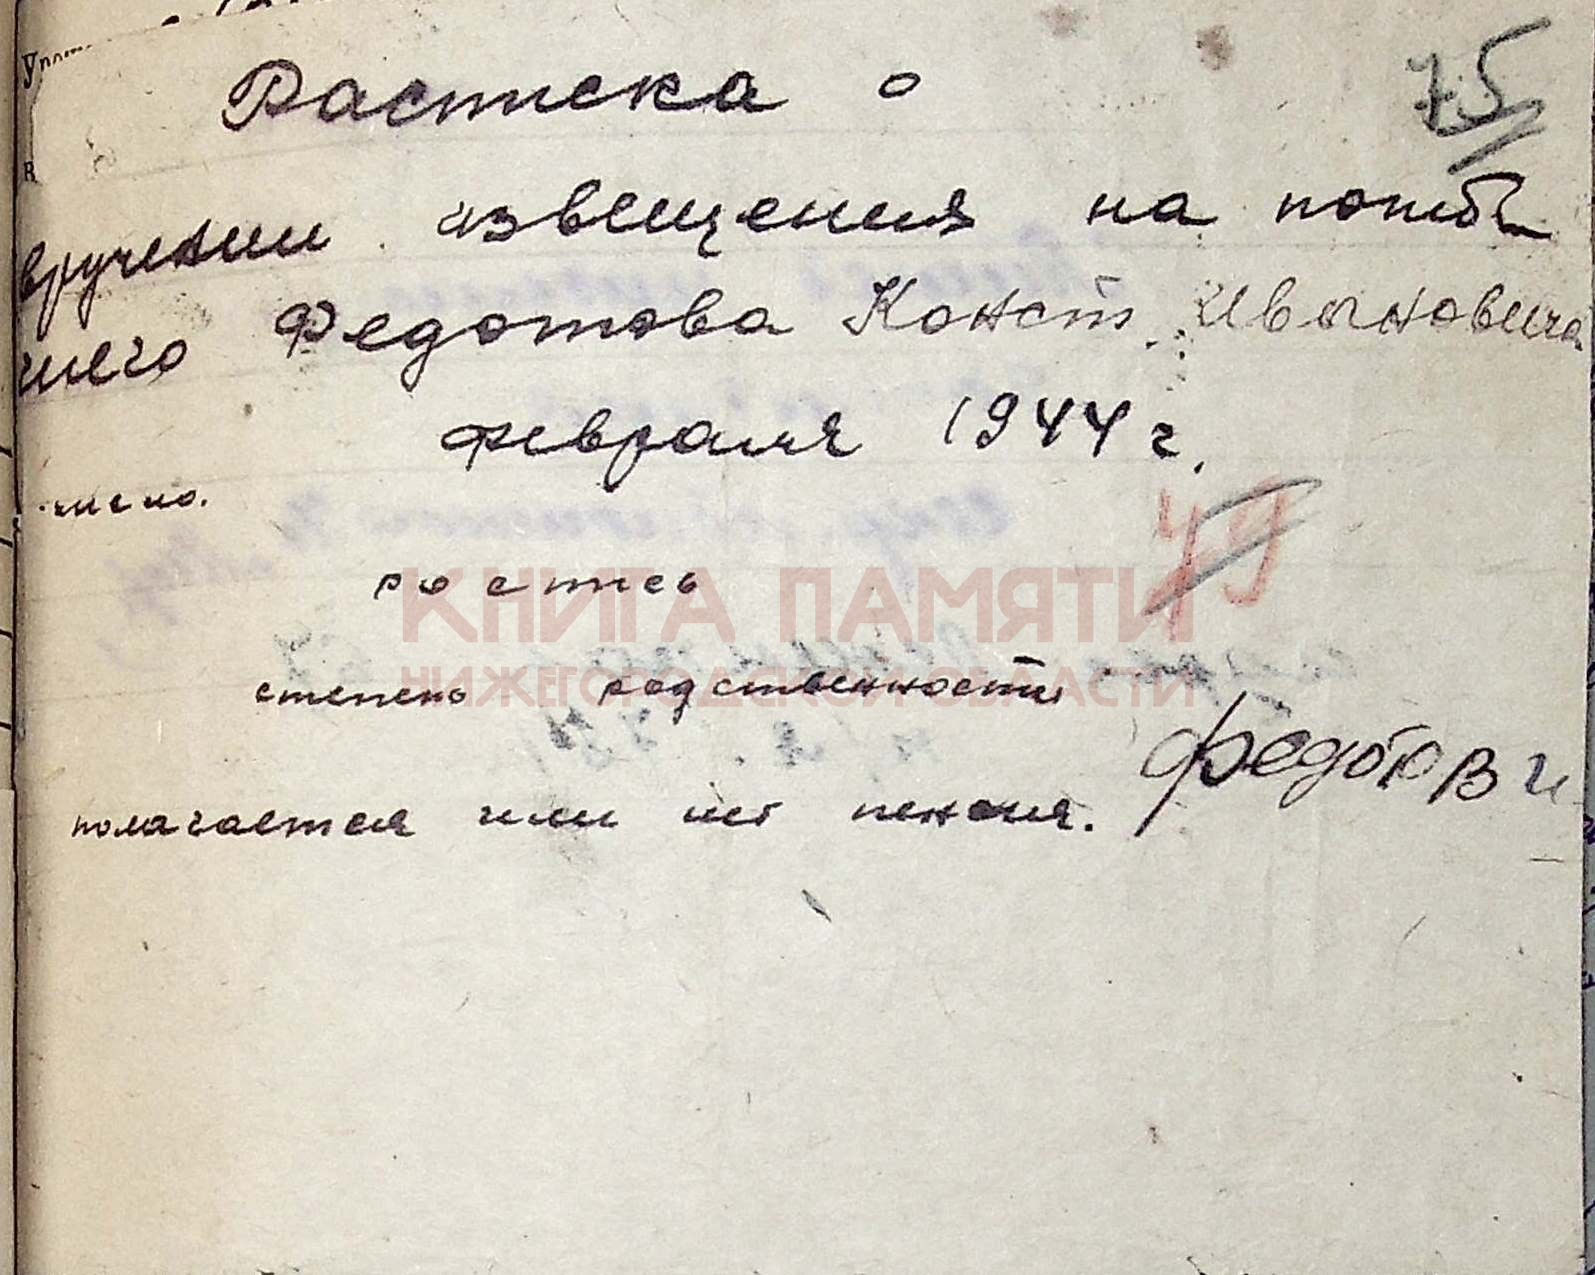 75
Расписка о
вручении извещения на погиб
шего Федотова Конст. Ивановича
февраля 1944 г.
число.
49
роспись
КНИГА ПАМЯТИ
степень родственности
НИЖЕГОРОДСКОЙ ОБЛАСТИ
Федотов и
полагается или нет пенсия.